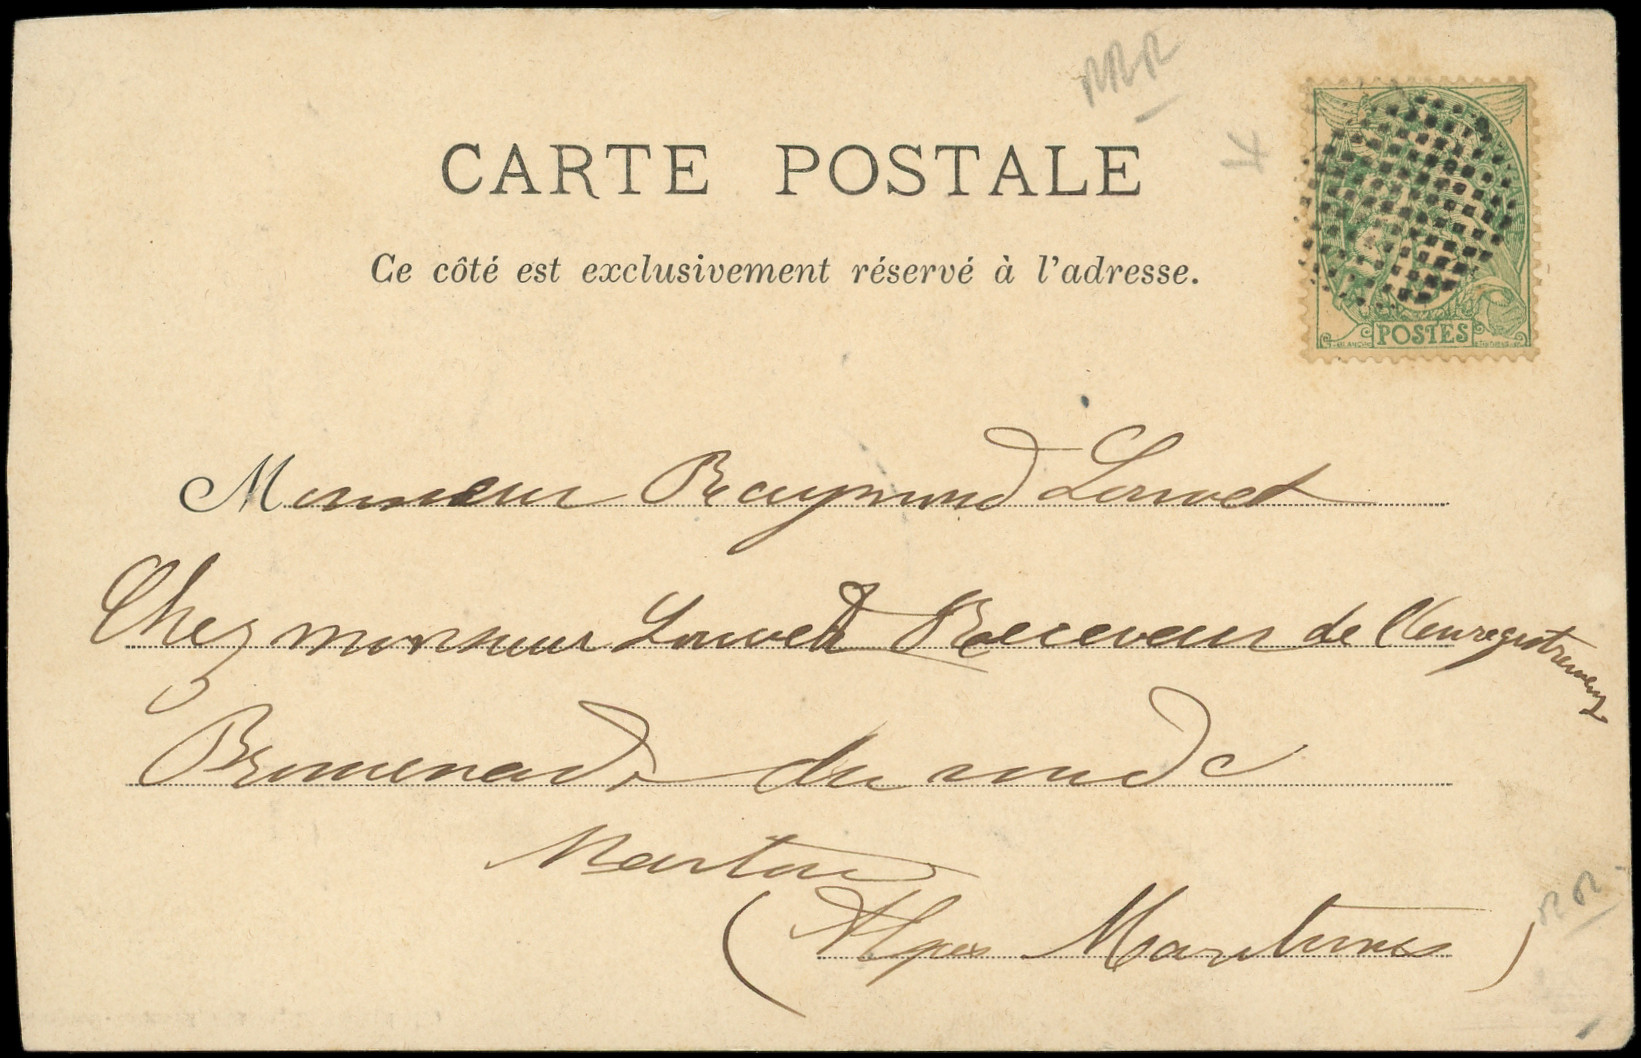 RRR
CARTE POSTALE
Ce côté est exclusivement réservé à l'adresse.
POSTES
Monsieur Raymond Louvet
Chez monsieur Louvet Receveur de l'enregistrement
Promenade du
Menton
(Alpes Maritimes)
RR